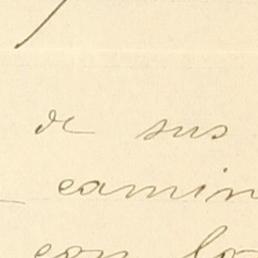 de sus
camin
con lo